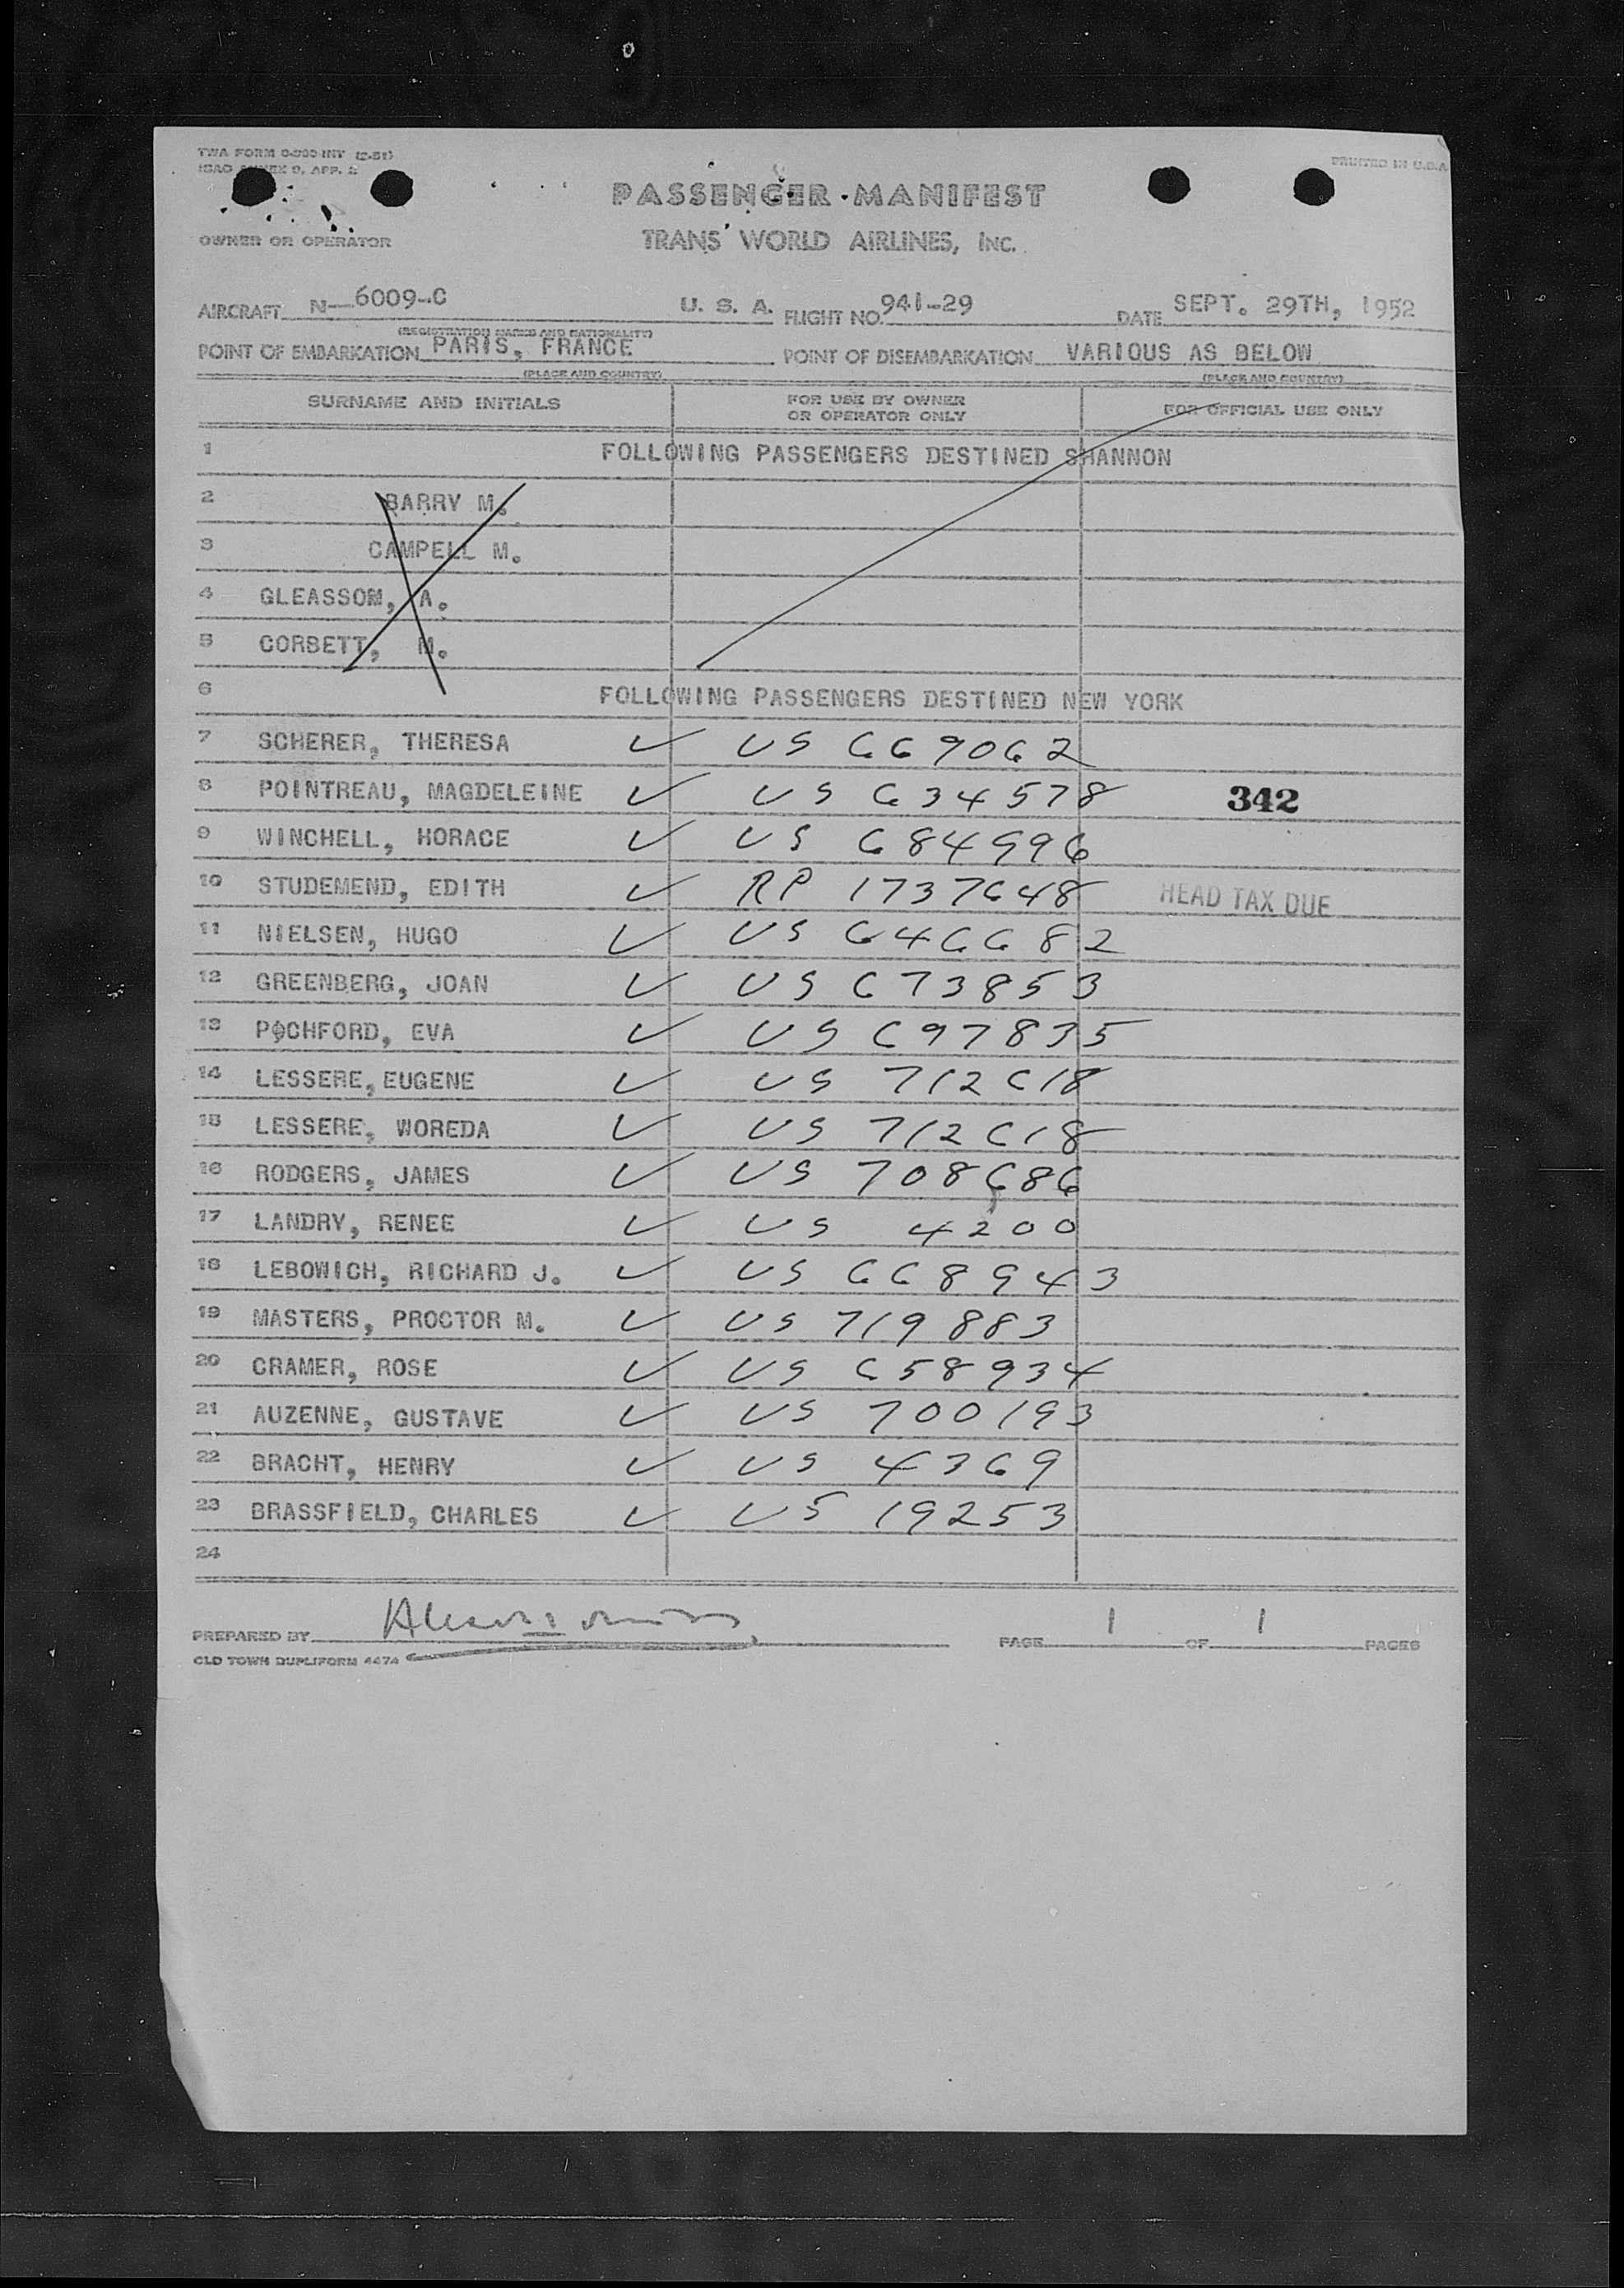 TWA FORM 0-300-INT (2-51)
ICAO ANNEX 9, APP. 2
PRINTED IN U.S.A
PASSENGER MANIFEST
OWNER OR OPERATOR
TRANS WORLD AIRLINES, INC.
AIRCRAFT N-6009-C U. S. A. FLIGHT NO. 941-29 DATE SEPT. 29TH, 1952
(REGISTRATION MARKS AND NATIONALITY)
POINT OF EMBARKATION PARIS, FRANCE POINT OF DISEMBARKATION VARIOUS AS BELOW
(PLACE AND COUNTRY) (PLACE AND COUNTRY)
SURNAME AND INITIALS FOR USE BY OWNER OR OPERATOR ONLY FOR OFFICIAL USE ONLY
1 FOLLOWING PASSENGERS DESTINED SHANNON
2 BARRY M.
3 CAMPELL M.
4 GLEASSOM, A.
5 CORBETT, M.
6 FOLLOWING PASSENGERS DESTINED NEW YORK
7 SCHERER, THERESA ✓ US 669062
8 POINTREAU, MAGDELEINE ✓ US 634578 342
9 WINCHELL, HORACE ✓ US 684996
10 STUDEMEND, EDITH ✓ RP 1737648 HEAD TAX DUE
11 NIELSEN, HUGO ✓ US 646682
12 GREENBERG, JOAN ✓ US 673853
13 POCHFORD, EVA ✓ US 697835
14 LESSERE, EUGENE ✓ US 712618
15 LESSERE, WOREDA ✓ US 712618
16 RODGERS, JAMES ✓ US 708686
17 LANDRY, RENEE ✓ US 4200
18 LEBOWICH, RICHARD J. ✓ US 668943
19 MASTERS, PROCTOR M. ✓ US 719883
20 CRAMER, ROSE ✓ US 658934
21 AUZENNE, GUSTAVE ✓ US 700193
22 BRACHT, HENRY ✓ US 4369
23 BRASSFIELD, CHARLES ✓ US 19253
24
PREPARED BY PAGE 1 OF 1 PAGES
OLD TOWN DUPLIFORM 4474